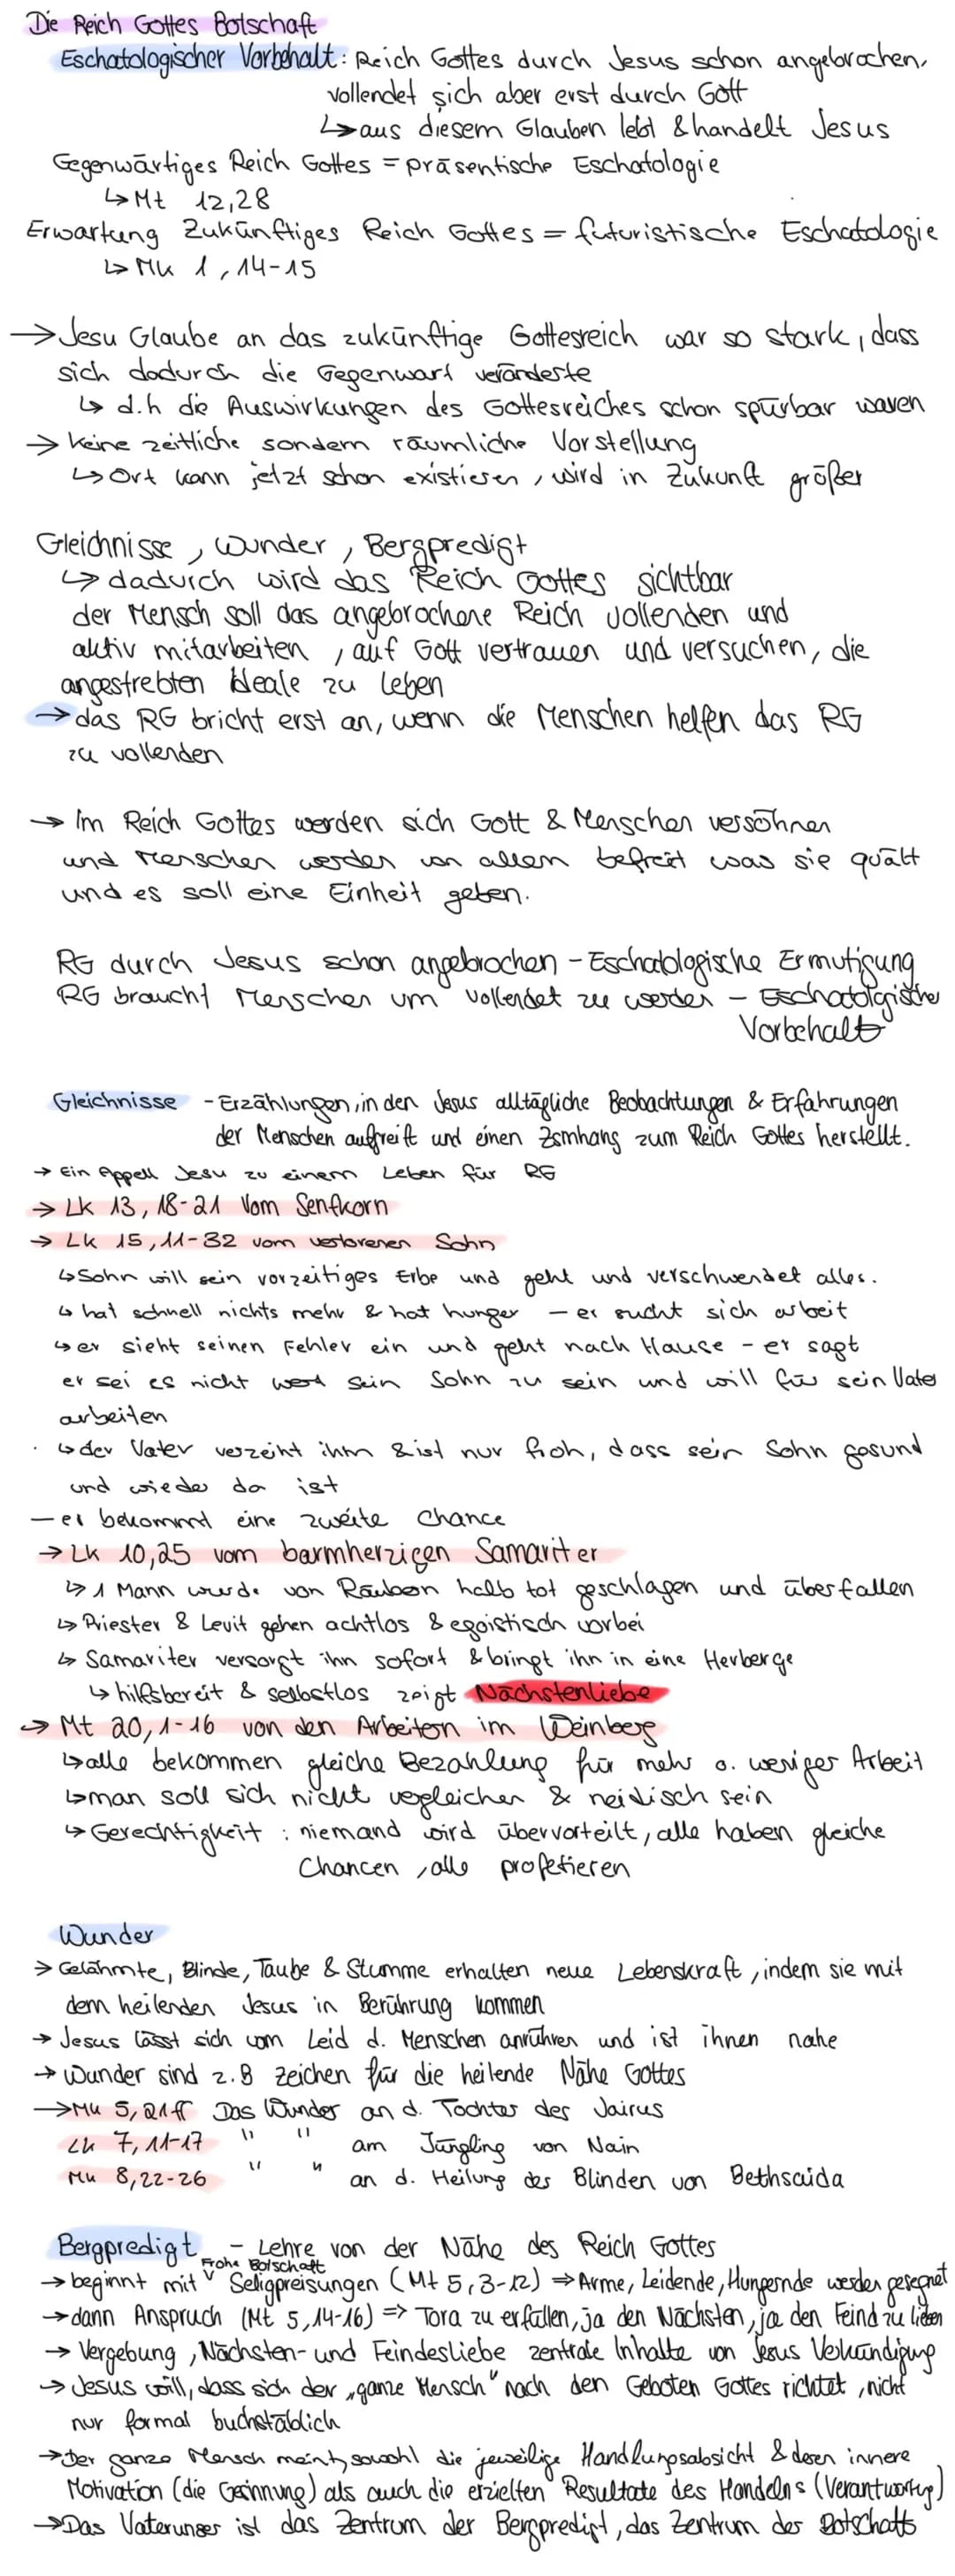 Die Reich Gottes Botschaft
Eschatologischer Vorbehalt: Reich Gottes durch Jesus schon angebrochen,
vollendet sich aber erst durch Gott
↳ aus diesem Glauben lebt & handelt Jesus
Gegenwärtiges Reich Gottes = präsentische Eschatologie
↳ Mt 12,28
Erwartung Zukünftiges Reich Gottes = futuristische Eschatologie
↳ Mk 1,14-15
→ Jesu Glaube an das zukünftige Gottesreich war so stark, dass
sich dadurch die Gegenwart veränderte
↳ d.h die Auswirkungen des Gottesreiches schon spürbar waren
→ keine zeitliche sondern räumliche Vorstellung
↳ Ort kann jetzt schon existieren, wird in Zukunft größer
Gleichnisse, Wunder, Bergpredigt
↳ dadurch wird das Reich Gottes sichtbar
der Mensch soll das angebrochene Reich vollenden und
aktiv mitarbeiten, auf Gott vertrauen und versuchen, die
angestrebten Ideale zu leben
→ das RG bricht erst an, wenn die Menschen helfen das RG
zu vollenden
→ Im Reich Gottes werden sich Gott & Menschen versöhnen
und Menschen werden von allem befreit was sie quält
und es soll eine Einheit geben.
RG durch Jesus schon angebrochen - Eschatologische Ermutigung
RG braucht Menschen um vollendet zu werden - Eschatolgischer
Vorbehalt
Gleichnisse - Erzählungen, in den Jesus alltägliche Beobachtungen & Erfahrungen
der Menschen aufgreift und einen Zsmhang zum Reich Gottes herstellt.
→ Ein Appell Jesu zu einem Leben für RG
→ Lk 13, 18-21 Vom Senfkorn
→ Lk 15, 11-32 vom verlorenen Sohn
↳ Sohn will sein vorzeitiges Erbe und geht und verschwendet alles.
↳ hat schnell nichts mehr & hat hunger - er sucht sich arbeit
↳ er sieht seinen Fehler ein und geht nach Hause - er sagt
er sei es nicht wert sein Sohn zu sein und will für sein Vater
arbeiten
↳ der Vater verzeiht ihm & ist nur froh, dass sein Sohn gesund
und wieder da ist
- er bekommt eine zweite Chance
→ Lk 10,25 vom barmherzigen Samariter
↳ 1 Mann wurde von Räubern halb tot geschlagen und überfallen
↳ Priester & Levit gehen achtlos & egoistisch vorbei
↳ Samariter versorgt ihn sofort & bringt ihn in eine Herberge
↳ hilfsbereit & selbstlos zeigt Nächstenliebe
→ Mt 20,1-16 von den Arbeitern im Weinberg
↳ alle bekommen gleiche Bezahlung für mehr o. weniger Arbeit
↳ man soll sich nicht vergleichen & neidisch sein
↳ Gerechtigkeit : niemand wird übervorteilt, alle haben gleiche
Chancen, alle profetieren
Wunder
→ Gelähmte, Blinde, Taube & Stumme erhalten neue Lebenskraft, indem sie mit
dem heilenden Jesus in Berührung kommen
→ Jesus lässt sich vom Leid d. Menschen anrühren und ist ihnen nahe
→ Wunder sind z.B Zeichen für die heilende Nähe Gottes
→ Mk 5, 21ff Das Wunder an d. Tochter des Jairus
Lk 7, 11-17 " " am Jüngling von Nain
Mk 8,22-26 " " an d. Heilung des Blinden von Bethsaida
Bergpredigt - Lehre von der Nähe des Reich Gottes
Frohe Botschaft
→ beginnt mit Seligpreisungen (Mt 5,3-12) ⇒ Arme, Leidende, Hungernde werden gesegnet
→ dann Anspruch (Mt 5,14-16) ⇒ Tora zu erfüllen, ja den Nächsten, ja den Feind zu lieben
→ Vergebung, Nächsten- und Feindesliebe zentrale Inhalte von Jesus Verkündigung
→ Jesus will, dass sich der „ganze Mensch" nach den Geboten Gottes richtet, nicht
nur formal buchstäblich
→ Der ganze Mensch meint, sowohl die jeweilige Handlungsabsicht & deren innere
Motivation (die Gesinnung) als auch die erzielten Resultate des Handelns (Verantwortung)
→ Das Vaterunser ist das Zentrum der Bergpredigt, das Zentrum der Botschaft